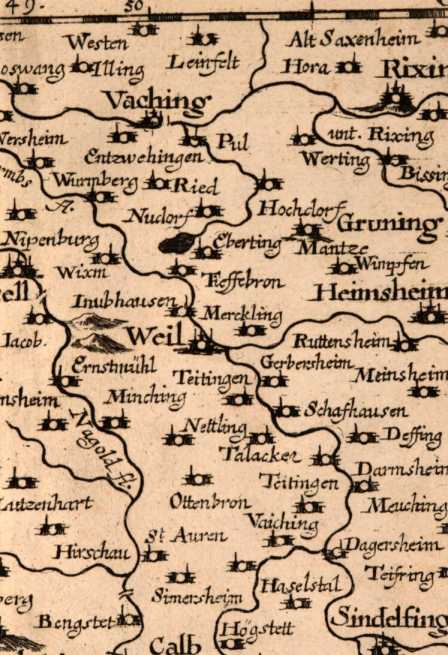 49.
50
Westen
Alt Saxenheim
oswang
Illing
Leinfelt
Hora
Rixin
Vaching
unt. Rixing
Wersheim
Entzwehingen
Pul
Werting
Bissin
Wurmberg
Ried
Nudorf
Hochdorf
Gruning
Nipenburg
Eberting
Mantze
Wixm
Wimpfen
Tieffebron
Heimsheim
ell
Inubhausen
Merckling
Iacob.
Weil
Ruttensheim
Ernstmühl
Gerbersheim
Teitingen
Meinsheim
nsheim
Minching
Schafhausen
Nagold fl.
Nettling
Deffing
Talacker
Darmsheim
Teitingen
Lutzenhart
Ottenbron
Meuching
Vaiching
St Auren
Hirschau
Dagersheim
Teifring
Simersheim
Haselstal
berg
Bengstet
Högstett
Sindelfing
Calb